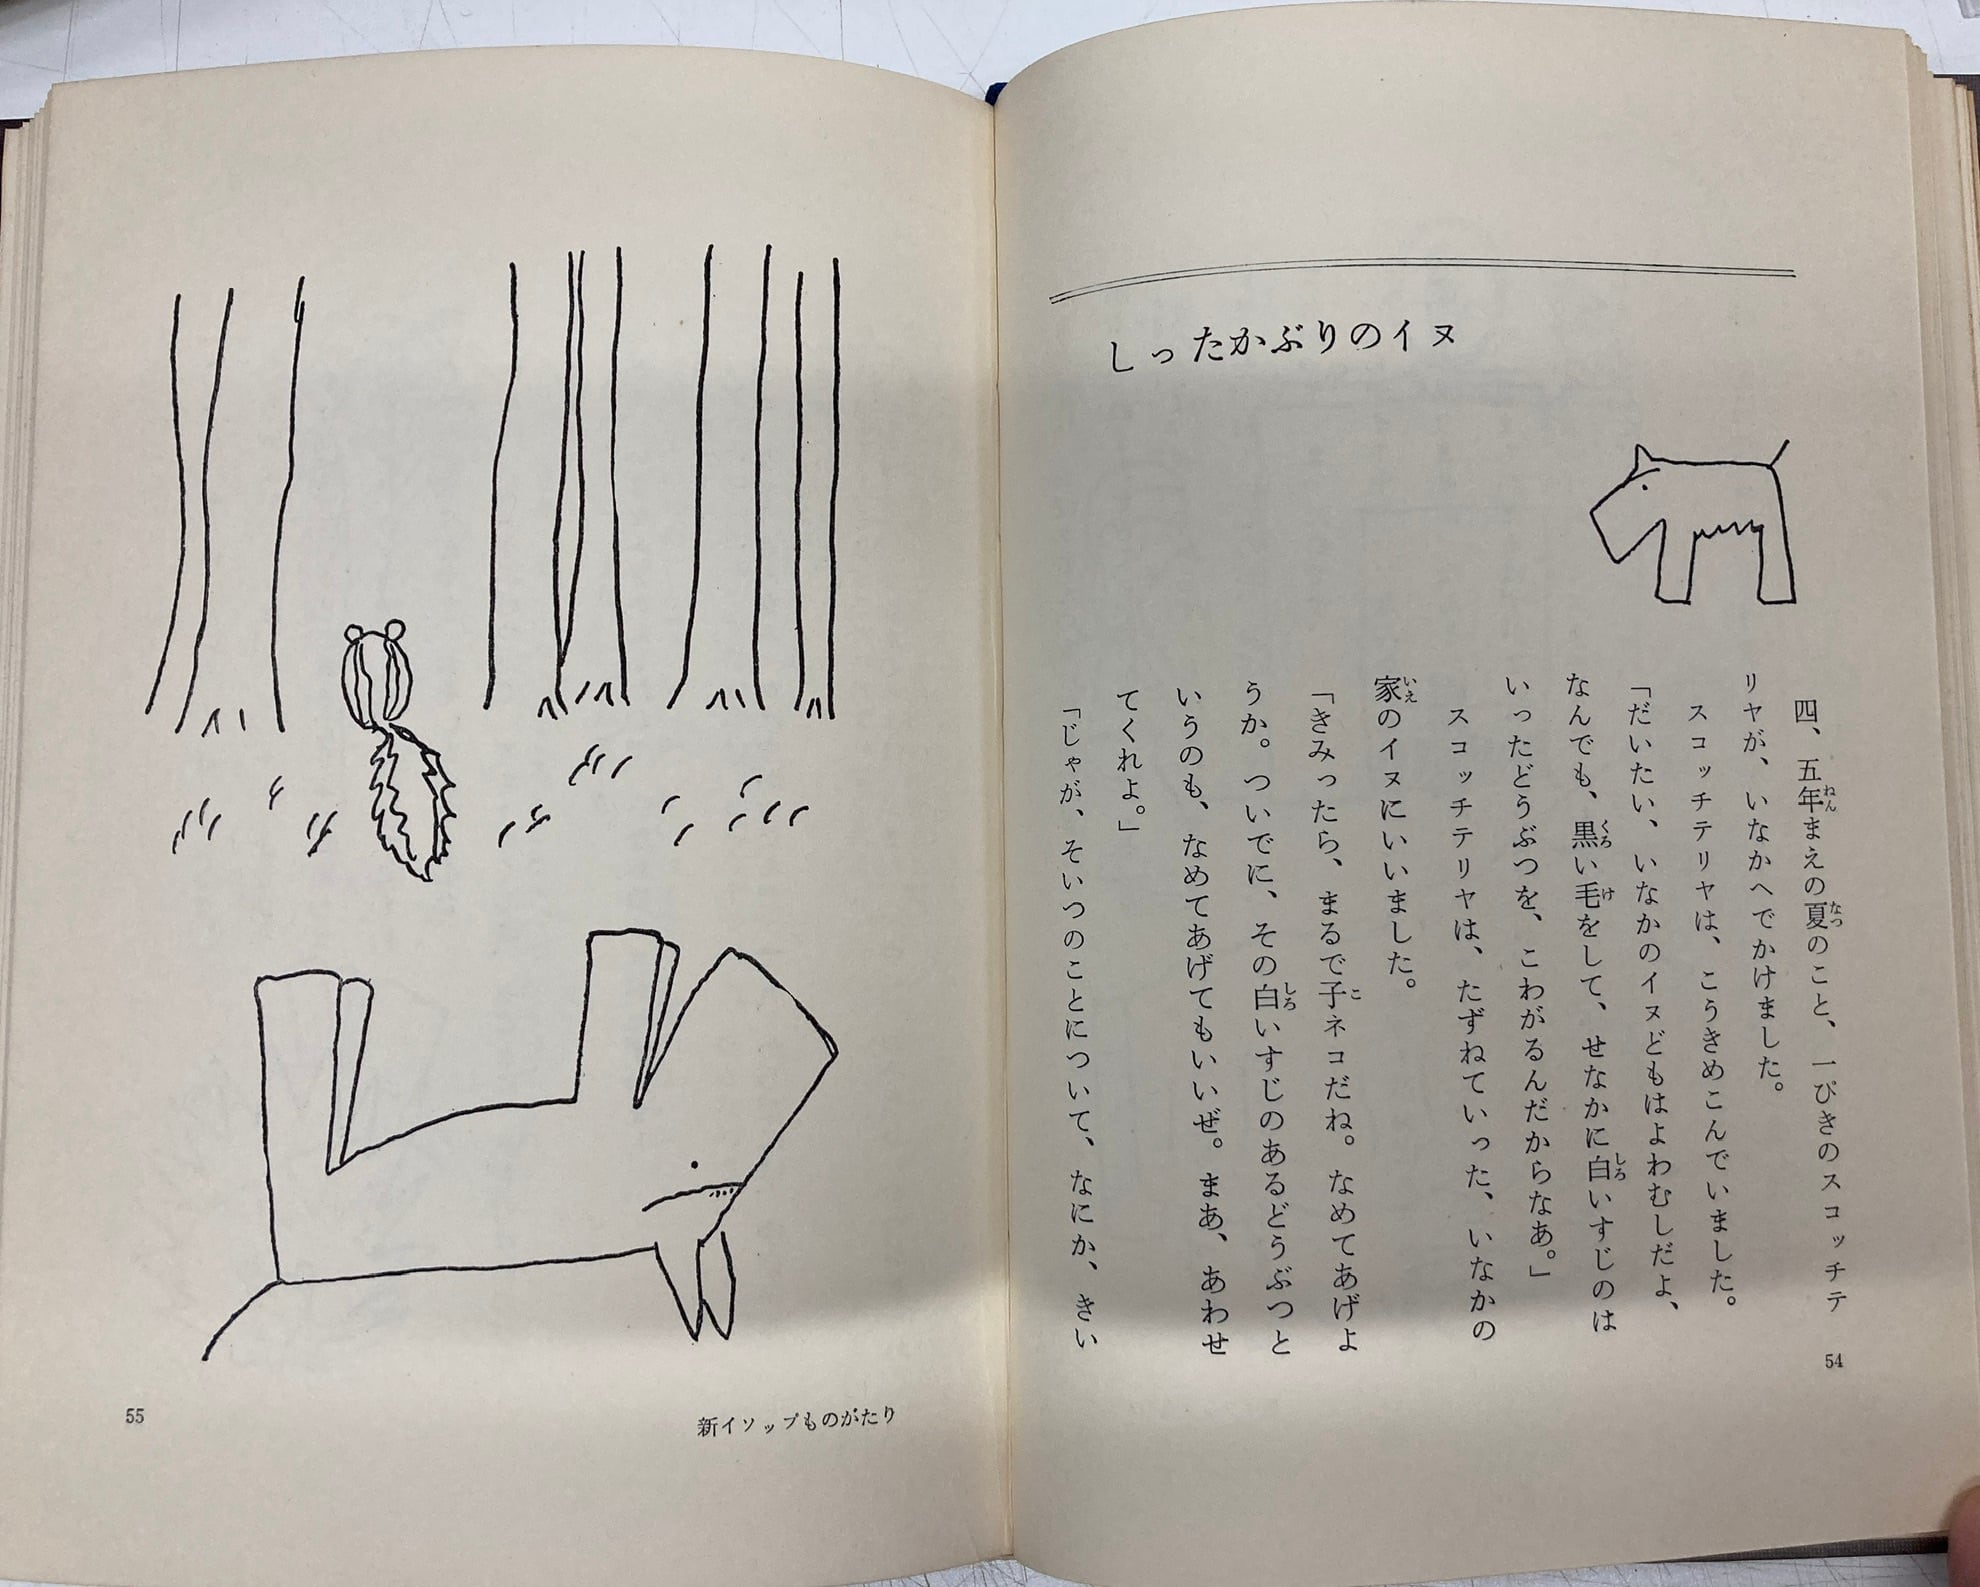 しったかぶりのイヌ
四、五年まえの夏のこと、一ぴきのスコッチテ
リヤが、いなかへでかけました。
スコッチテリヤは、こうきめこんでいました。
「だいたい、いなかのイヌどもはよわむしだよ、
なんでも、黒い毛をして、せなかに白いすじのは
いったどうぶつを、こわがるんだからなあ。」
スコッチテリヤは、たずねていった、いなかの
家のイヌにいいました。
「きみったら、まるで子ネコだね。なめてあげよ
うか。ついでに、その白いすじのあるどうぶつと
いうのも、なめてあげてもいいぜ。まあ、あわせ
てくれよ。」
「じゃが、そいつのことについて、なにか、きい
54
新イソップものがたり
55